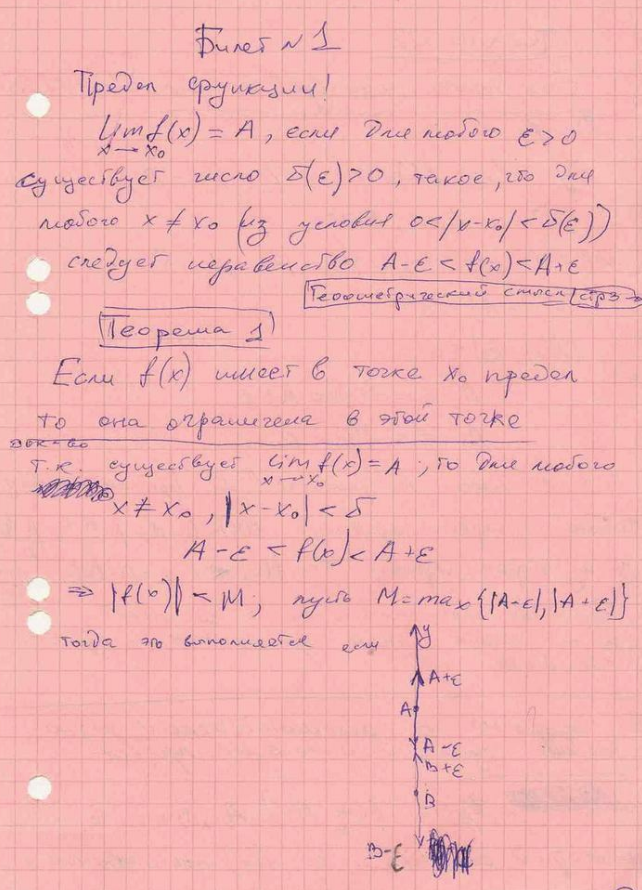 Билет N 1
Предел функции!
lim f(x) = A, если для любого ε>0
x→x₀
существует число δ(ε)>0, такое, что для
любого x ≠ x₀ (из условия 0<|x-x₀|<δ(ε))
следует неравенство A-ε < f(x) < A+ε
Геометрический смысл стр3→
Теорема 1
Если f(x) имеет в точке x₀ предел
то она ограничена в этой точке
док-во
Т.к. существует lim f(x) = A, то для любого
x→x₀
x ≠ x₀, |x-x₀| < δ
A-ε < f(x) < A+ε
⇒ |f(x)| < M; пусть M=max{|A-ε|,|A+ε|}
тогда это выполняется если
y
A+ε
A
A-ε
B+ε
B
B-ε